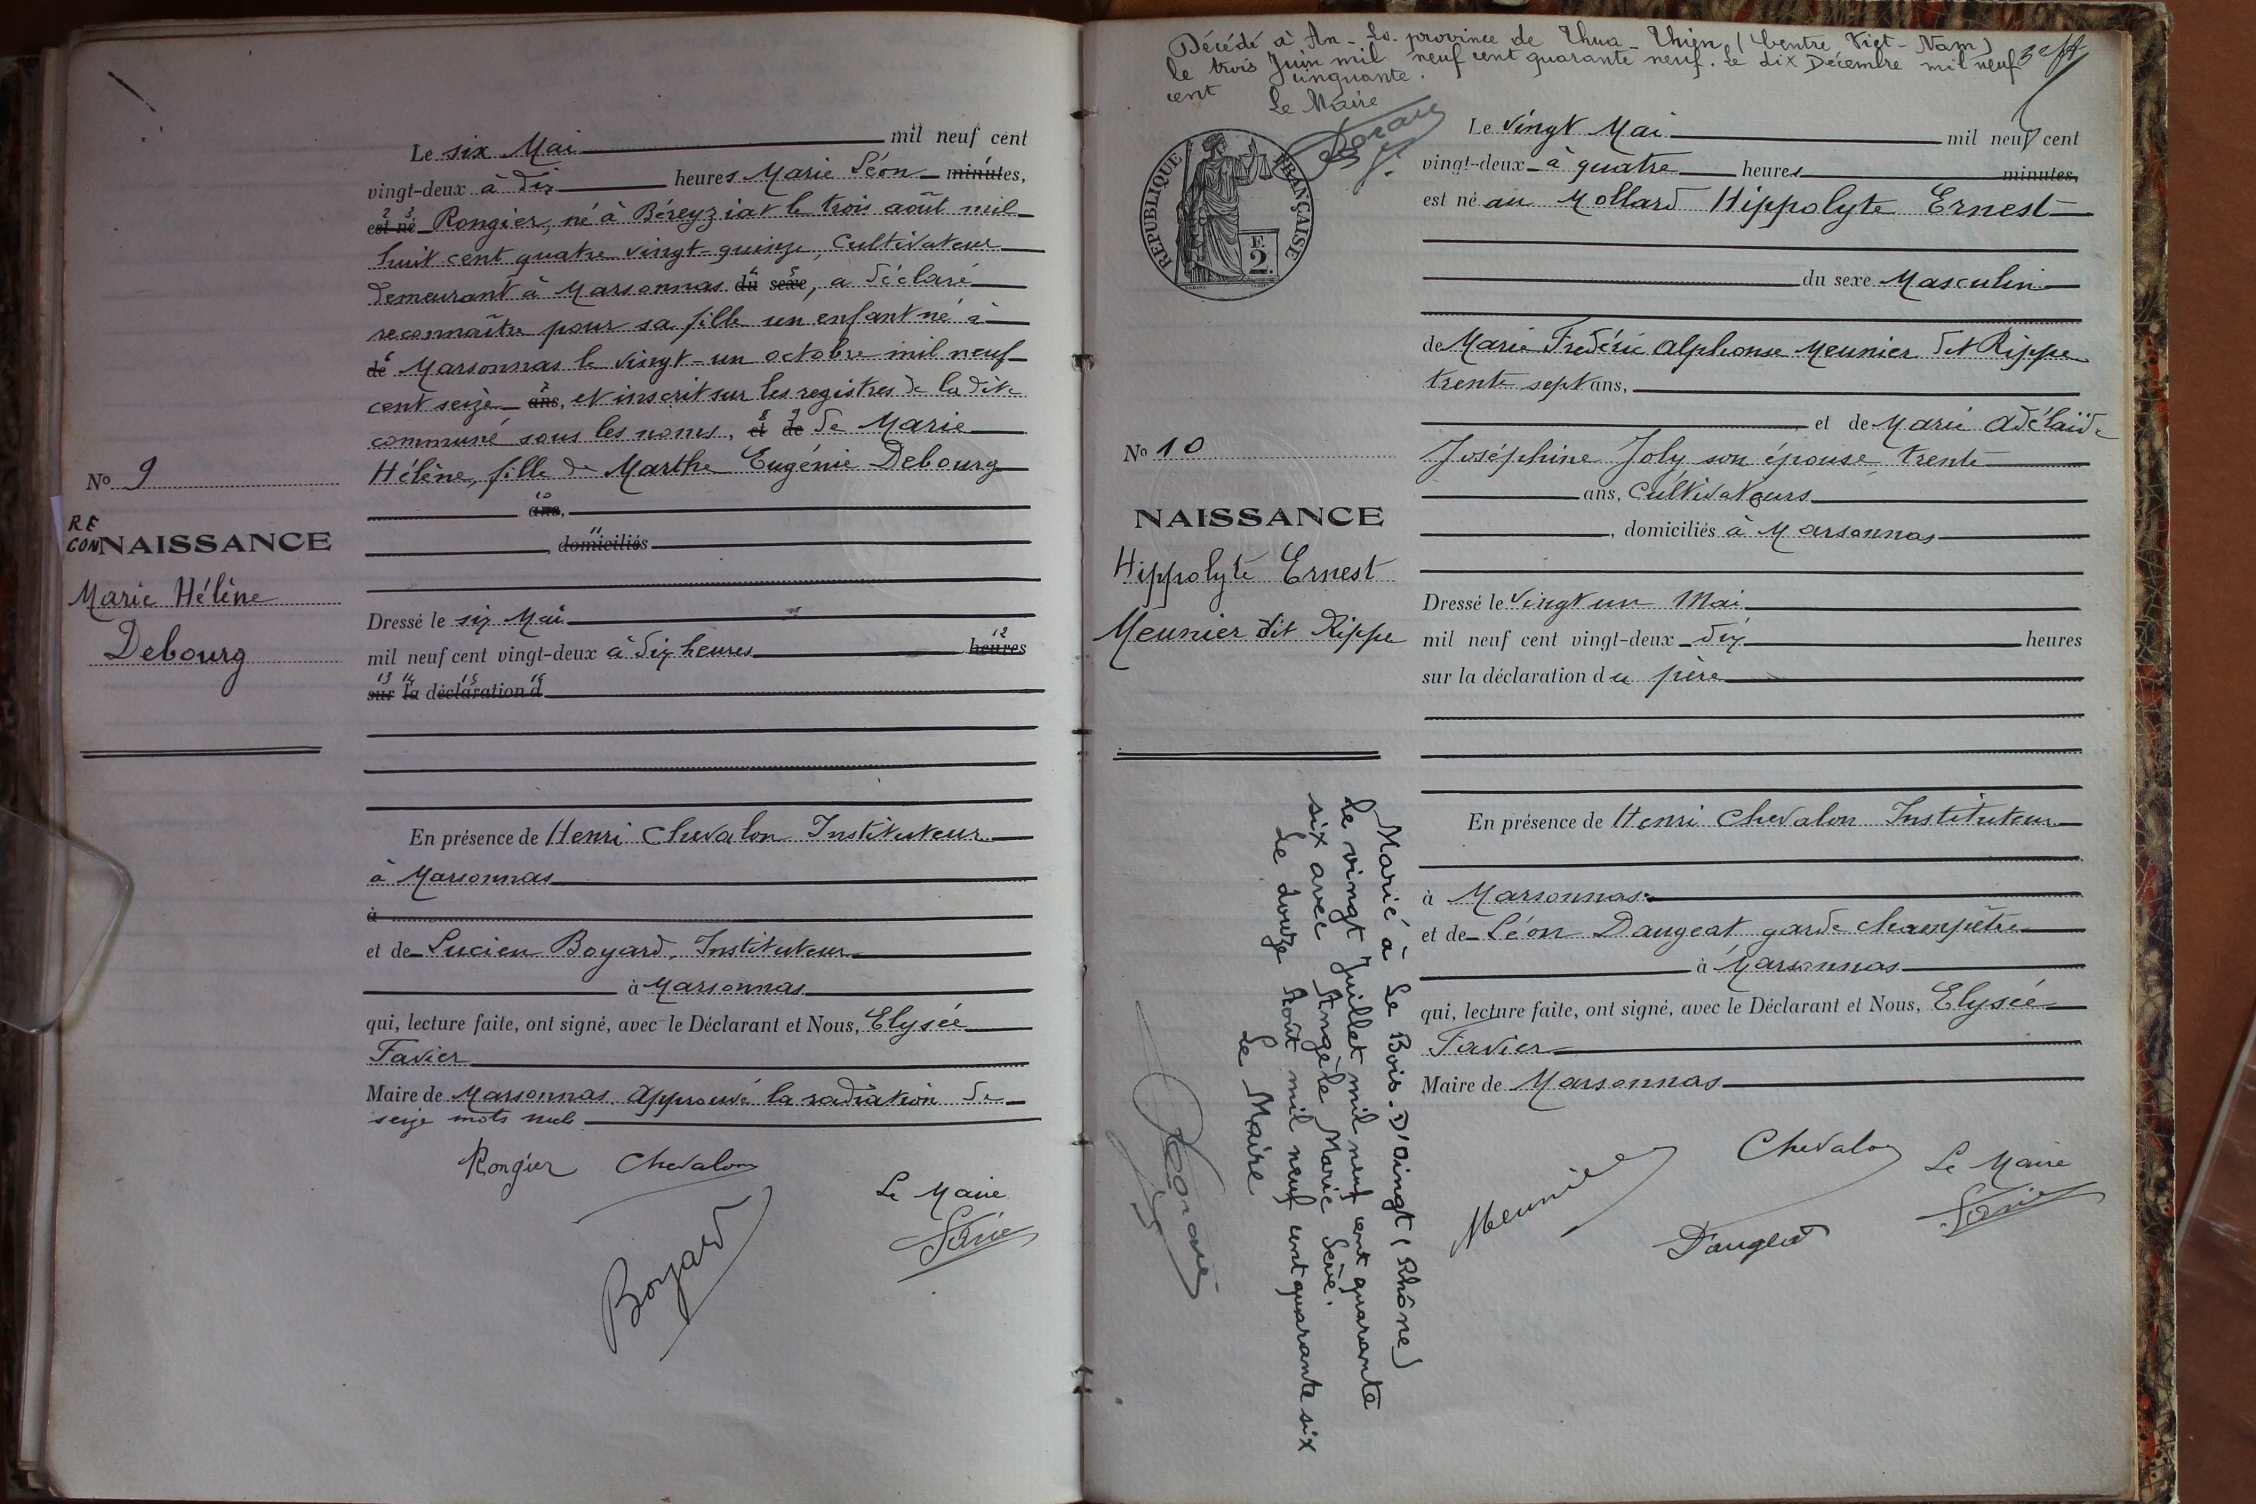 Le six Mai mil neuf cent
vingt-deux à dix heures Marie Léon minutes,
2 3
est né Rongier, né à Béreyziat le trois août mil
huit cent quatre vingt-quinze, Cultivateur
demeurant à Marsonnas du sexe, a déclaré
reconnaître pour sa fille un enfant né à
de Marsonnas le vingt-un octobre mil neuf
cent seize ans, et inscrit sur les registres de la dite
commune sous les noms, et de de Marie
Hélène, fille de Marthe Eugénie Debourg
10
ans,
11
, domiciliés
No 9
RE
CONNAISSANCE
Marie Hélène
Debourg
Dressé le six Mai
12
mil neuf cent vingt-deux à dix heures heures
13 14 15 16
sur la déclaration d
En présence de Henri Chevalon Instituteur
à Marsonnas
à
et de Lucien Boyard, Instituteur
à Marsonnas
qui, lecture faite, ont signé, avec le Déclarant et Nous, Elysée
Favier
Maire de Marsonnas Approuvé la radiation de
seize mots nuls
Rongier Chevalon
Le Maire
Boyard
Favier
Décédé à An-Lo province de Thua-Thien (Centre Viet-Nam)
le trois Juin mil neuf cent quarante neuf. Le dix Décembre mil neuf
cent cinquante.
Le Maire
RÉPUBLIQUE FRANÇAISE
F.
2.
Le vingt Mai mil neuf cent
vingt-deux à quatre heures minutes,
est né au Mollard Hippolyte Ernest
du sexe Masculin
de Marie Frédéric Alphonse Meunier dit Rippe
trente sept ans,
et de Marie Adélaïde
Joséphine Joly son épouse trente
ans, Cultivateurs
, domiciliés à Marsonnas
No 10
NAISSANCE
Hippolyte Ernest
Meunier dit Rippe
Dressé le vingt un Mai
mil neuf cent vingt-deux dix heures
sur la déclaration du père
En présence de Henri Chevalon Instituteur
à Marsonnas
et de Léon Daugeat garde champêtre
à Marsonnas
qui, lecture faite, ont signé, avec le Déclarant et Nous, Elysée
Favier
Maire de Marsonnas
Meunier
Chevalon
Le Maire
Daugeat
Favier
Marié à Le Bois-D'Oingt (Rhône)
le vingt Juillet mil neuf cent quarante
six avec Angèle Marie Sève.
Le douze Août mil neuf cent quarante six
Le Maire